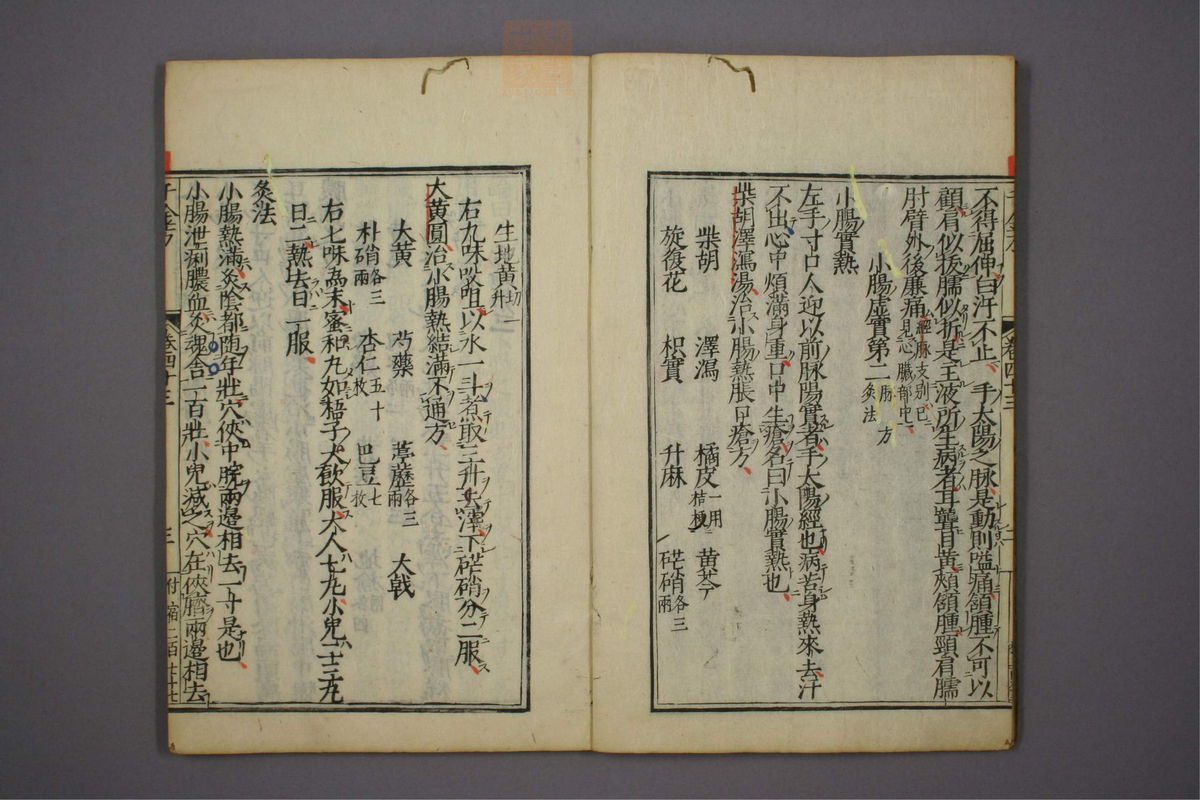 不得屈伸白汗不止手太陽之脉是動則嗌痛頷腫不可以
顧肩似拔臑似折是主液所生病者耳聾目黃頰頷腫頸肩臑
肘臂外後廉痛經脉支別已見心臟部中
小腸虛實第二脉方灸法
小腸實熱
左手寸口人迎以前脉陽實者手太陽經也病苦身熱來去汗
不出心中煩滿身重口中生瘡名曰小腸實熱也
柴胡澤瀉湯治小腸熱脹口瘡方
柴胡 澤瀉 橘皮一用桔梗 黃芩
旋復花 枳實 升麻 芒硝各三兩
生地黃切一升
右九味㕮咀以水一斗煮取三升去滓下芒硝分二服
大黃圓治小腸熱結滿不通方
大黃 芍藥 葶藶各三兩 大戟
朴硝各三兩 杏仁五十枚 巴豆七枚
右七味爲末蜜和丸如梧子大飲服大人七丸小兒二三丸
日二熱去日一服
灸法
小腸熱滿灸陰都隨年壯穴俠中脘兩邊相去一寸是也
小腸泄痢膿血灸魂舍一百壯小兒減之穴在俠臍兩邊相去